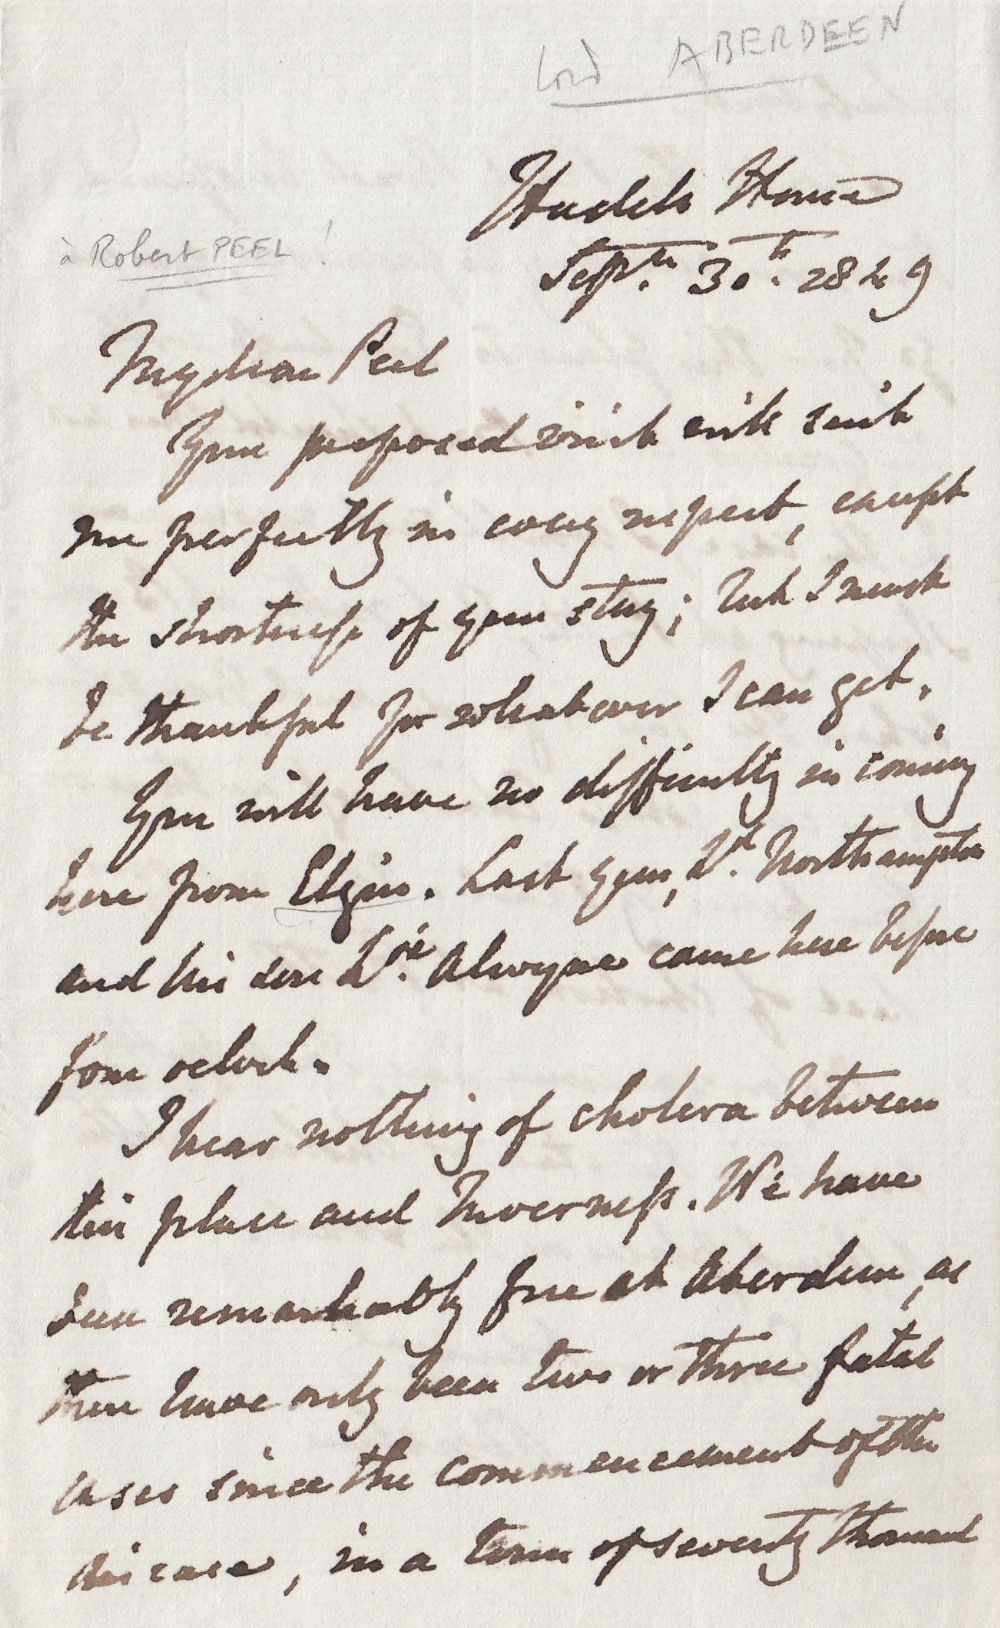 Lord ABERDEEN
Haddo House
à Robert PEEL!
Septr. 30th. 1849
My dear Peel
Your proposed visit will suit
me perfectly in every respect, except
the shortness of your stay; but I must
be thankful for whatever I can get.
You will have no difficulty in coming
here from Elgin. Last year, Ld. Northampton
and his son Lord Alwyne came here before
four oclock.
I hear nothing of cholera between
this place and Inverness. We have
been remarkably free at Aberdeen, as
there have only been two or three fatal
cases since the commencement of the
disease, in a town of seventy thousand